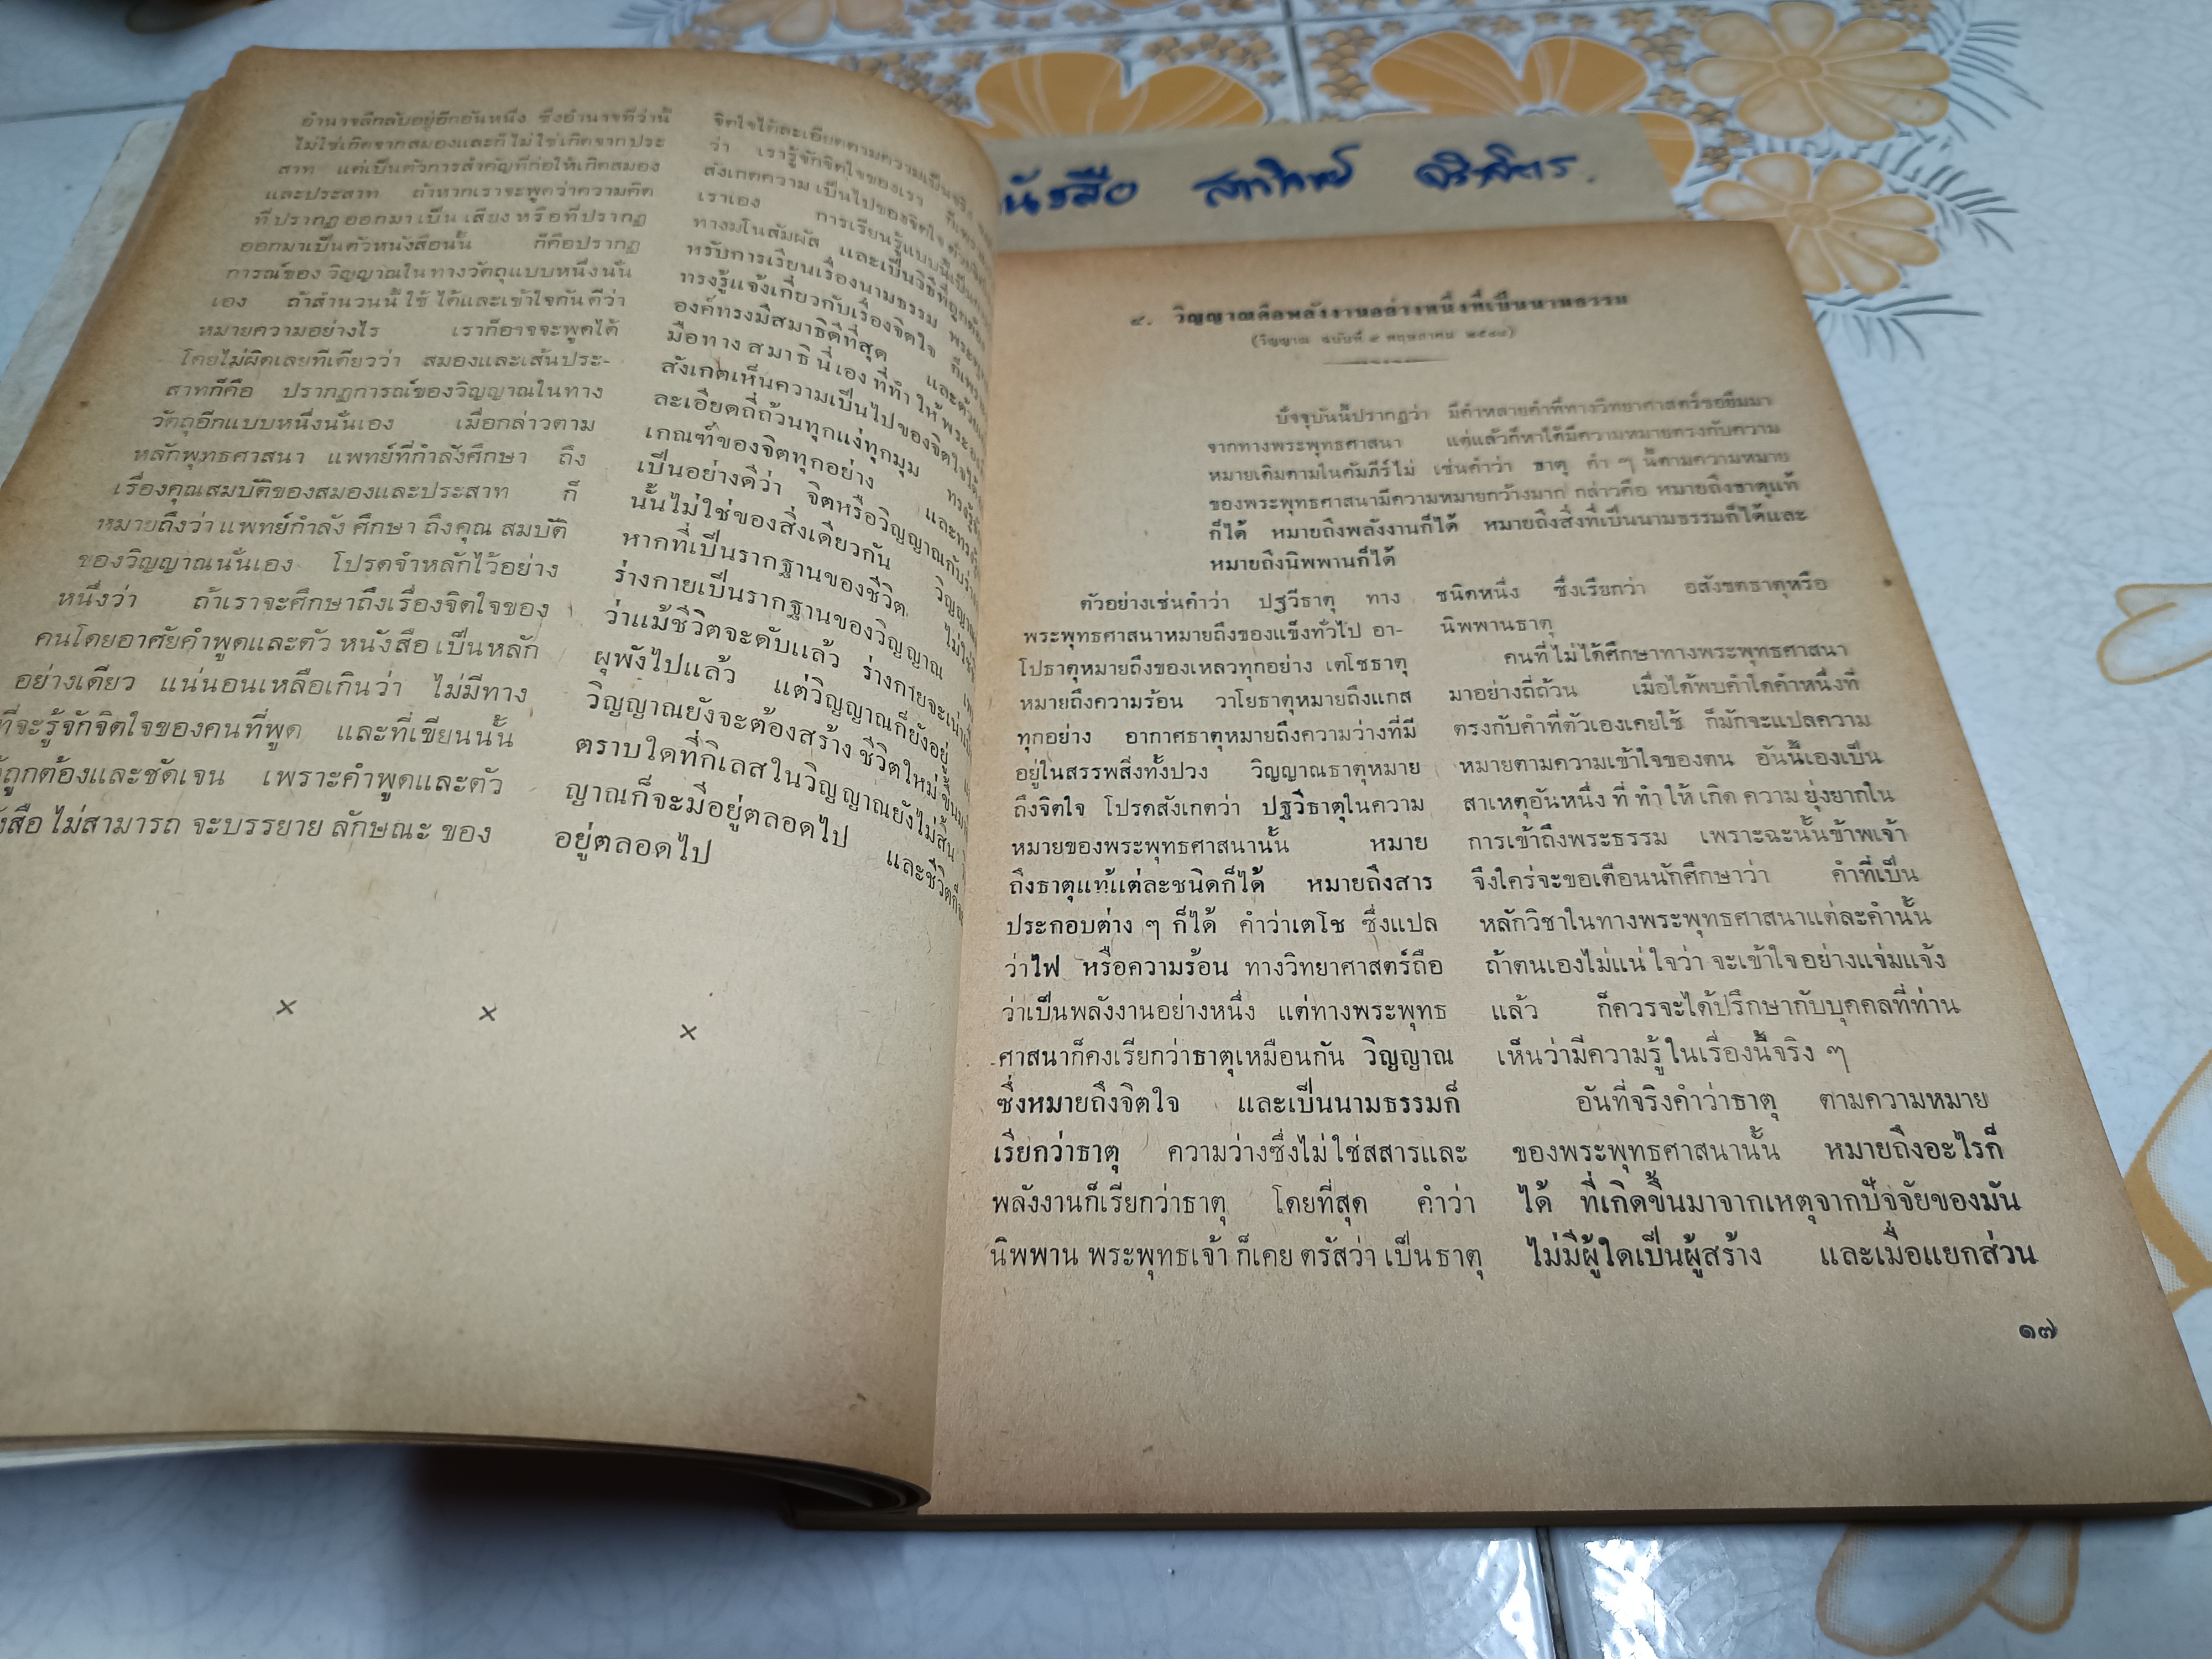 อำนาจลึกลับอยู่อีกอันหนึ่ง ซึ่งอำนาจที่ว่านี้
ไม่ใช่เกิดจากสมองและก็ไม่ใช่เกิดจากประ
สาท แต่เป็นตัวการสำคัญที่ก่อให้เกิดสมอง
และประสาท ถ้าหากเราจะพูดว่าความคิด
ที่ปรากฏออกมาเป็นเสียงหรือที่ปรากฏ
ออกมาเป็นตัวหนังสือนั้น ก็คือปรากฏ
การณ์ของวิญญาณในทางวัตถุแบบหนึ่งนั่น
เอง ถ้าสำนวนนี้ใช้ได้และเข้าใจกันดีว่า
หมายความอย่างไร เราก็อาจจะพูดได้
โดยไม่ผิดเลยทีเดียวว่า สมองและเส้นประ-
สาทก็คือ ปรากฏการณ์ของวิญญาณในทาง
วัตถุอีกแบบหนึ่งนั่นเอง เมื่อกล่าวตาม
หลักพุทธศาสนา แพทย์ที่กำลังศึกษา ถึง
เรื่องคุณสมบัติของสมองและประสาท ก็
หมายถึงว่าแพทย์กำลังศึกษาถึงคุณสมบัติ
ของวิญญาณนั่นเอง โปรดจำหลักไว้อย่าง
หนึ่งว่า ถ้าเราจะศึกษาถึงเรื่องจิตใจของ
คนโดยอาศัยคำพูดและตัวหนังสือเป็นหลัก
อย่างเดียว แน่นอนเหลือเกินว่า ไม่มีทาง
ที่จะรู้จักจิตใจของคนที่พูด และที่เขียนนั้น
ถูกต้องและชัดเจน เพราะคำพูดและตัว
ไม่สามารถจะบรรยายลักษณะของ
จิตใจได้ละเอียดตามความเป็นจริง
ว่า เรารู้จักจิตใจของเรา
สังเกตความเป็นไปของจิตใจ
เราเอง การเรียนรู้แบบนี้เป็น
ทางมโนสัมผัส และเป็นวิธีที่ถูกต้อง
หรับการเรียนเรื่องนามธรรม
ทรงรู้แจ้งเกี่ยวกับเรื่องจิตใจ
องค์ทรงมีสมาธิดีที่สุด และด้วย
มือทางสมาธินี่เองที่ทำให้พระองค์
สังเกตเห็นความเป็นไปของจิตใจได้
ละเอียดถี่ถ้วนทุกแง่ทุกมุม
เกณฑ์ของจิตทุกอย่าง
เป็นอย่างดีว่า จิตหรือวิญญาณกับ
นั้นไม่ใช่ของสิ่งเดียวกัน
หากที่เป็นรากฐานของชีวิต ไม่ใช่
ร่างกายเป็นรากฐานของวิญญาณ
ว่าแม้ชีวิตจะดับแล้ว ร่างกายจะเน่า
ผุพังไปแล้ว แต่วิญญาณก็ยังอยู่
วิญญาณยังจะต้องสร้างชีวิตใหม่ขึ้น
ตราบใดที่กิเลสในวิญญาณยังไม่สิ้น
ญาณก็จะมีอยู่ตลอดไป และชีวิตก็
อยู่ตลอดไป
× × ×
หนังสือ
๔. วิญญาณคือพลังงานอย่างหนึ่งที่เป็นนามธรรม
ปัจจุบันนี้ปรากฏว่า มีคำหลายคำที่ทางวิทยาศาสตร์ขอยืมมา
จากทางพระพุทธศาสนา แต่แล้วก็หาได้มีความหมายตรงกับความ
หมายเดิมตามในคัมภีร์ไม่ เช่นคำว่า ธาตุ คำ ๆ นี้ตามความหมาย
ของพระพุทธศาสนามีความหมายกว้างมาก กล่าวคือ หมายถึงธาตุแท้
ก็ได้ หมายถึงพลังงานก็ได้ หมายถึงสิ่งที่เป็นนามธรรมก็ได้และ
หมายถึงนิพพานก็ได้
ตัวอย่างเช่นคำว่า ปฐวีธาตุ ทาง
พระพุทธศาสนาหมายถึงของแข็งทั่วไป อา-
โปธาตุหมายถึงของเหลวทุกอย่าง เตโชธาตุ
หมายถึงความร้อน วาโยธาตุหมายถึงแกส
ทุกอย่าง อากาศธาตุหมายถึงความว่างที่มี
อยู่ในสรรพสิ่งทั้งปวง วิญญาณธาตุหมาย
ถึงจิตใจ โปรดสังเกตว่า ปฐวีธาตุในความ
หมายของพระพุทธศาสนานั้น หมาย
ถึงธาตุแท้แต่ละชนิดก็ได้ หมายถึงสาร
ประกอบต่าง ๆ ก็ได้ คำว่าเตโช ซึ่งแปล
ว่าไฟ หรือความร้อน ทางวิทยาศาสตร์ถือ
ว่าเป็นพลังงานอย่างหนึ่ง แต่ทางพระพุทธ
ศาสนาก็คงเรียกว่าธาตุเหมือนกัน วิญญาณ
ซึ่งหมายถึงจิตใจ และเป็นนามธรรมก็
เรียกว่าธาตุ ความว่างซึ่งไม่ใช่สสารและ
พลังงานก็เรียกว่าธาตุ โดยที่สุด คำว่า
นิพพาน พระพุทธเจ้าก็เคยตรัสว่าเป็นธาตุ
ชนิดหนึ่ง ซึ่งเรียกว่า อสังขตธาตุหรือ
นิพพานธาตุ
คนที่ไม่ได้ศึกษาทางพระพุทธศาสนา
มาอย่างถี่ถ้วน เมื่อได้พบคำใดคำหนึ่งที่
ตรงกับคำที่ตัวเองเคยใช้ ก็มักจะแปลความ
หมายตามความเข้าใจของตน อันนี้เองเป็น
สาเหตุอันหนึ่งที่ทำให้เกิดความยุ่งยากใน
การเข้าถึงพระธรรม เพราะฉะนั้นข้าพเจ้า
จึงใคร่จะขอเตือนนักศึกษาว่า คำที่เป็น
หลักวิชาในทางพระพุทธศาสนาแต่ละคำนั้น
ถ้าตนเองไม่แน่ใจว่าจะเข้าใจอย่างแจ่มแจ้ง
แล้ว ก็ควรจะได้ปรึกษากับบุคคลที่ท่าน
เห็นว่ามีความรู้ในเรื่องนี้จริง ๆ
อันที่จริงคำว่าธาตุ ตามความหมาย
ของพระพุทธศาสนานั้น หมายถึงอะไรก็
ได้ ที่เกิดขึ้นมาจากเหตุจากปัจจัยของมัน
ไม่มีผู้ใดเป็นผู้สร้าง และเมื่อแยกส่วน
๑๗